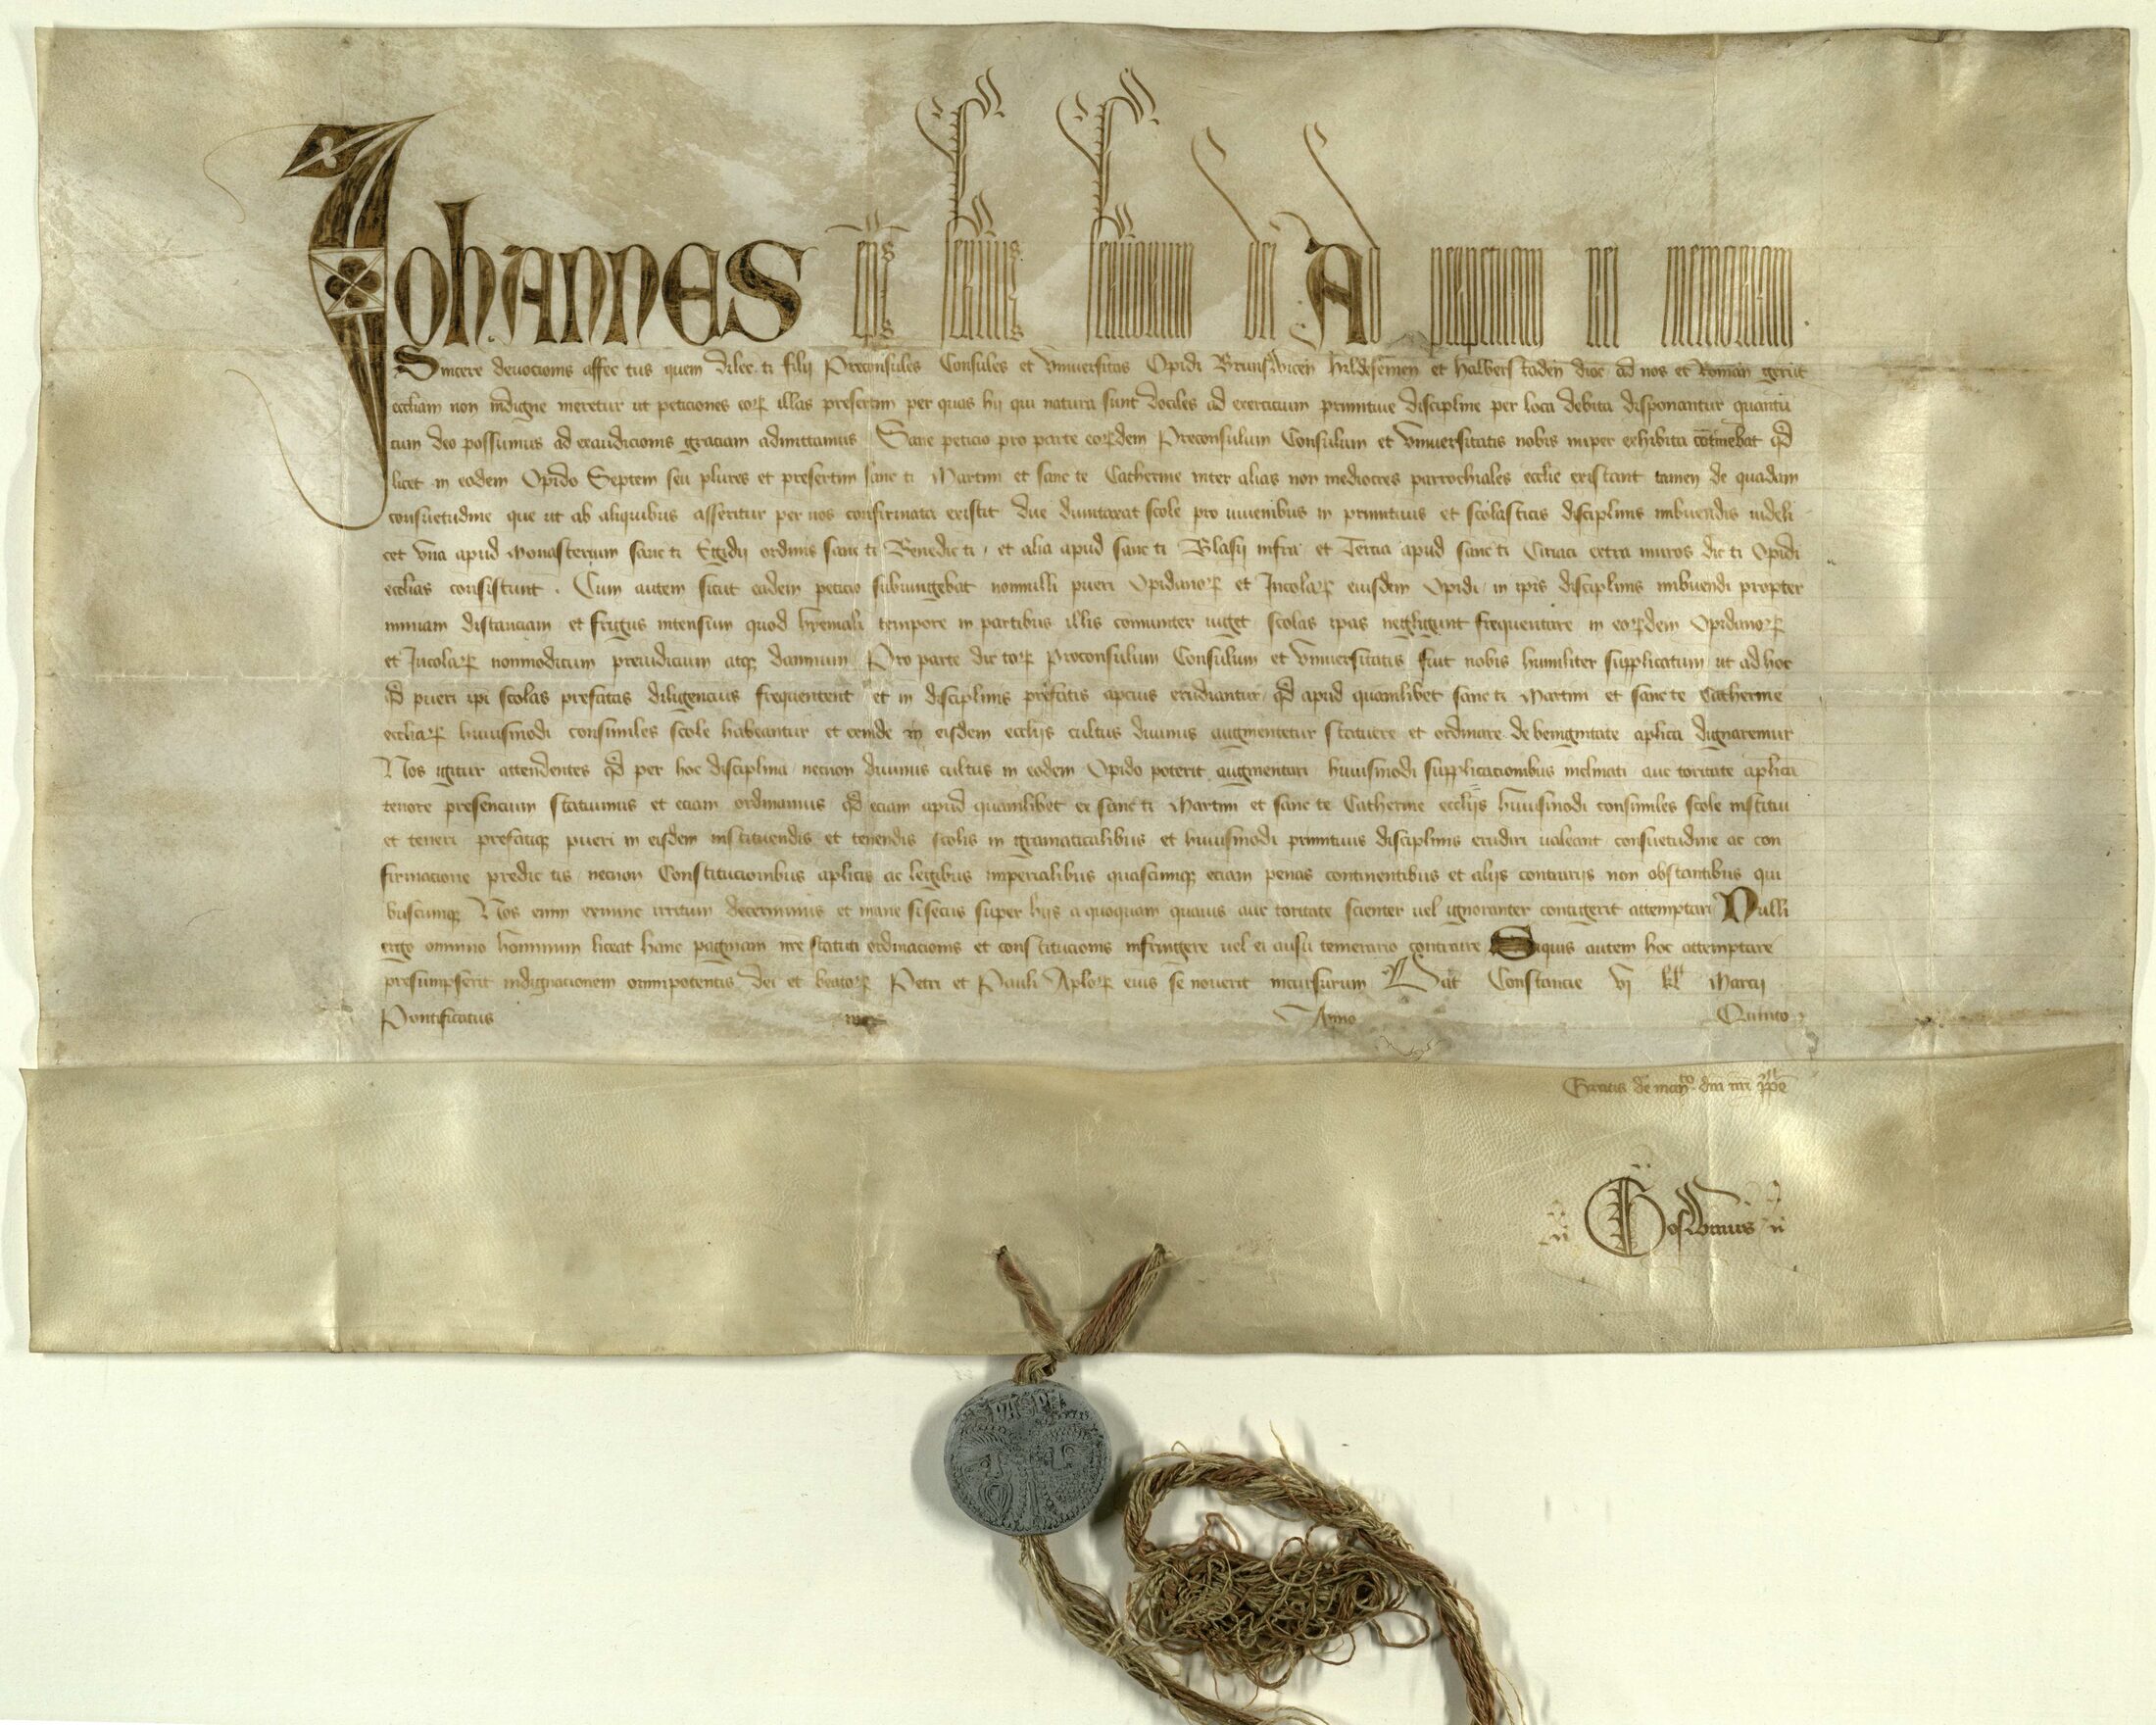 Johannes ep̄s seruus seruorum dei Ad perpetuam rei memoriam
Sincere deuocionis affectus quem dilecti filij Preconsules Consules et Vniuersitas Opidi Brunswicen̄ hildesemen̄ et halberstaden̄ dioc̄ ad nos et Roman̄ gerūt
eccl̄iam non indigne meretur ut peticiones eoꝝ illas presertim per quas hij qui natura sunt dociles ad exercicium primitiue discipline per loca debita disponantur quantū
cum deo possumus ad exaudicionis graciam admittamus Sane peticio pro parte eoꝝdem Preconsulum Consulum et Vniuersitatis nobis nuper exhibita continebat qd̄
licet in eodem Opido Septem seu plures et presertim sancti Martini et sancte Catherine inter alias non mediocres parrochiales eccl̄ie existant tamen de quadam
consuetudine que ut ab aliquibus asseritur per nos confirmata existit due dumtaxat scole pro iuuenibus in primitiuis et scolasticis disciplinis imbuendis uideli
cet Vna apud Monasterium sancti Egidij ordinis sancti Benedicti et alia apud sancti Blasij infra et Tercia apud sancti Ciriaci extra muros dicti Opidi
eccl̄ias consistunt . Cum autem sicut eadem peticio subiungebat nonnulli pueri Opidanoꝝ et Incolaꝝ eiusdem Opidi in ip̄is disciplinis imbuendi propter
nimiam distanciam et frigus intensum quod hyemali tempore in partibus illis com̄uniter uiget scolas ip̄as negligunt frequentare in eoꝝdem Opidanoꝝ
et Incolaꝝ nonmodicum preiudicium atqꝫ dampnum Pro parte dictoꝝ Proconsulum Consulum et Vniuersitatis fuit nobis humiliter supplicatum ut ad hoc
qd̄ pueri ip̄i scolas prefatas diligencius frequentent et in disciplinis prefatis apcius erudiantur qd̄ apud quamlibet sancti Martini et sancte Catherine
eccl̄iaꝝ huiusmodi consimiles scole habeantur et exinde in eisdem eccl̄ijs cultus diuinus augmentetur statuere et ordinare de benignitate apl̄ica dignaremur
Nos igitur attendentes qd̄ per hoc disciplina necnon diuinus cultus in eodem Opido poterit augmentari huiusmodi supplicacionibus inclinati auctoritate apl̄ica
tenore presencium statuimus et eciam ordinamus qd̄ eciam apud quamlibet ex sancti Martini et sancte Catherine eccl̄ijs huiusmodi consimiles scole institui
et teneri prefatiqꝫ pueri in eisdem instituendis et tenendis scolis in gramaticalibus et huiusmodi primitiuis disciplinis erudiri ualeant consuetudine ac con
firmacione predictis necnon Constitucionibus apl̄icis ac legibus imperialibus quascumqꝫ eciam penas continentibus et alijs contrarijs non obstantibus qui
buscumqꝫ Nos enim exnunc irritum decernimus et inane si secus super hijs a quoquam quauis auctoritate scienter uel ignoranter contigerit attemptari Nulli
ergo omnino hominum liceat hanc paginam nr̄e statuti ordinacionis et constitucionis infringere uel ei ausu temerario contraire Siquis autem hoc attemptare
presumpserit indignacionem omnipotentis dei et beatoꝝ Petri et Pauli Apl̄oꝝ eius se nouerit incursurum Dat̄ Constancie vj kl̄ Marcij
Pontificatus nr̄i Anno Quinto
Gratis de man̄to dn̄i nr̄i pp̄e